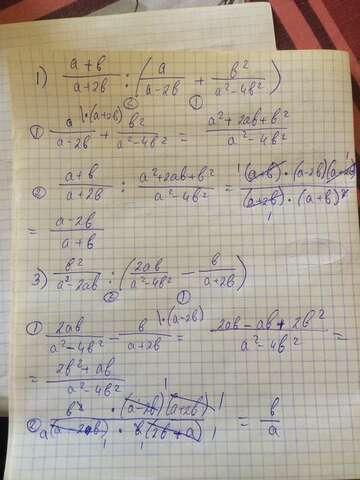 1) (a+b)/(a+2b) : (a/(a-2b) + b²/(a²-4b²))
② ①
① a/(a-2b) |·(a+2b) + b²/(a²-4b²) = (a²+2ab+b²)/(a²-4b²)
② (a+b)/(a+2b) : (a²+2ab+b²)/(a²-4b²) = (a+b)·(a-2b)(a+2b)/(a+2b)·(a+b)²
= (a-2b)/(a+b)
3) b²/(a²-2ab) : (2ab/(a²-4b²) - b/(a+2b))
② ①
① 2ab/(a²-4b²) - b/(a+2b) |·(a-2b) = (2ab-ab+2b²)/(a²-4b²) =
= (2b²+ab)/(a²-4b²)
② b²·(a-2b)(a+2b)/a(a-2b)·b(2b+a) = b/a